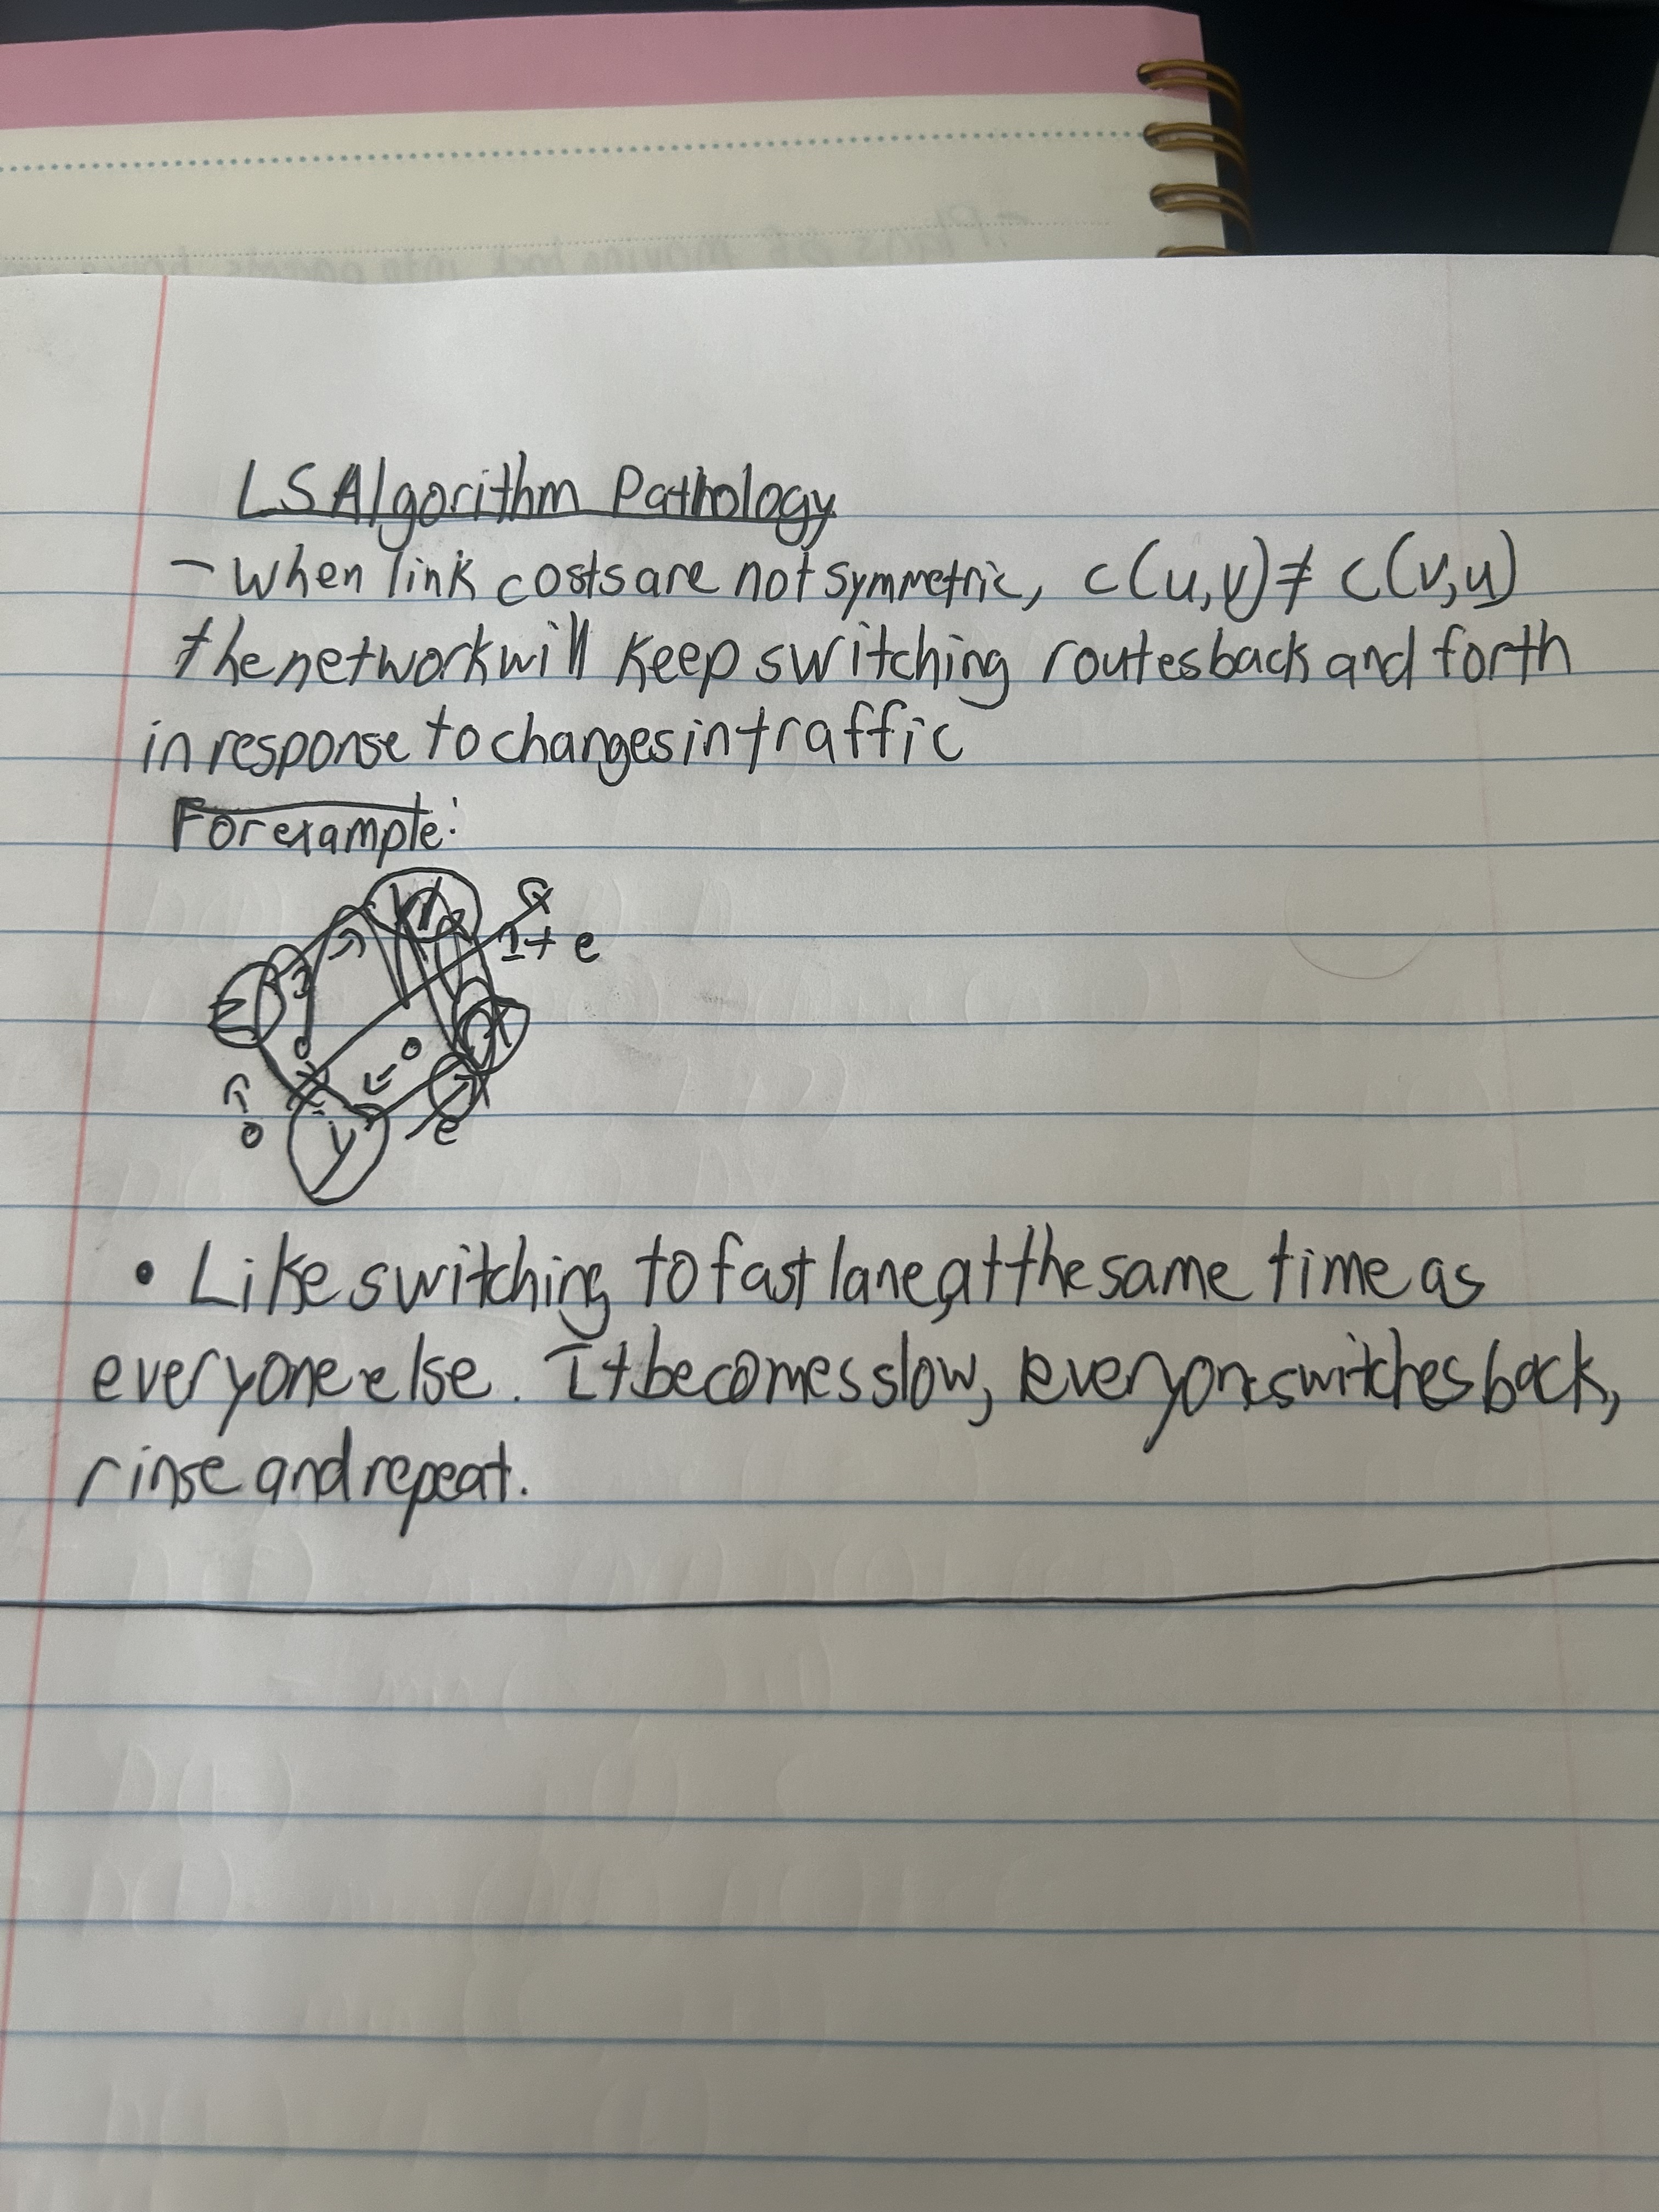 LS Algorithm Pathology
- When link costs are not symmetric, c(u,v) ≠ c(v,u)
the network will keep switching routes back and forth
in response to changes in traffic
For example:
1+ e
0
0
0
y
e
• Like switching to fast lane, at the same time as
everyone else. It becomes slow, everyone switches back,
rinse and repeat.